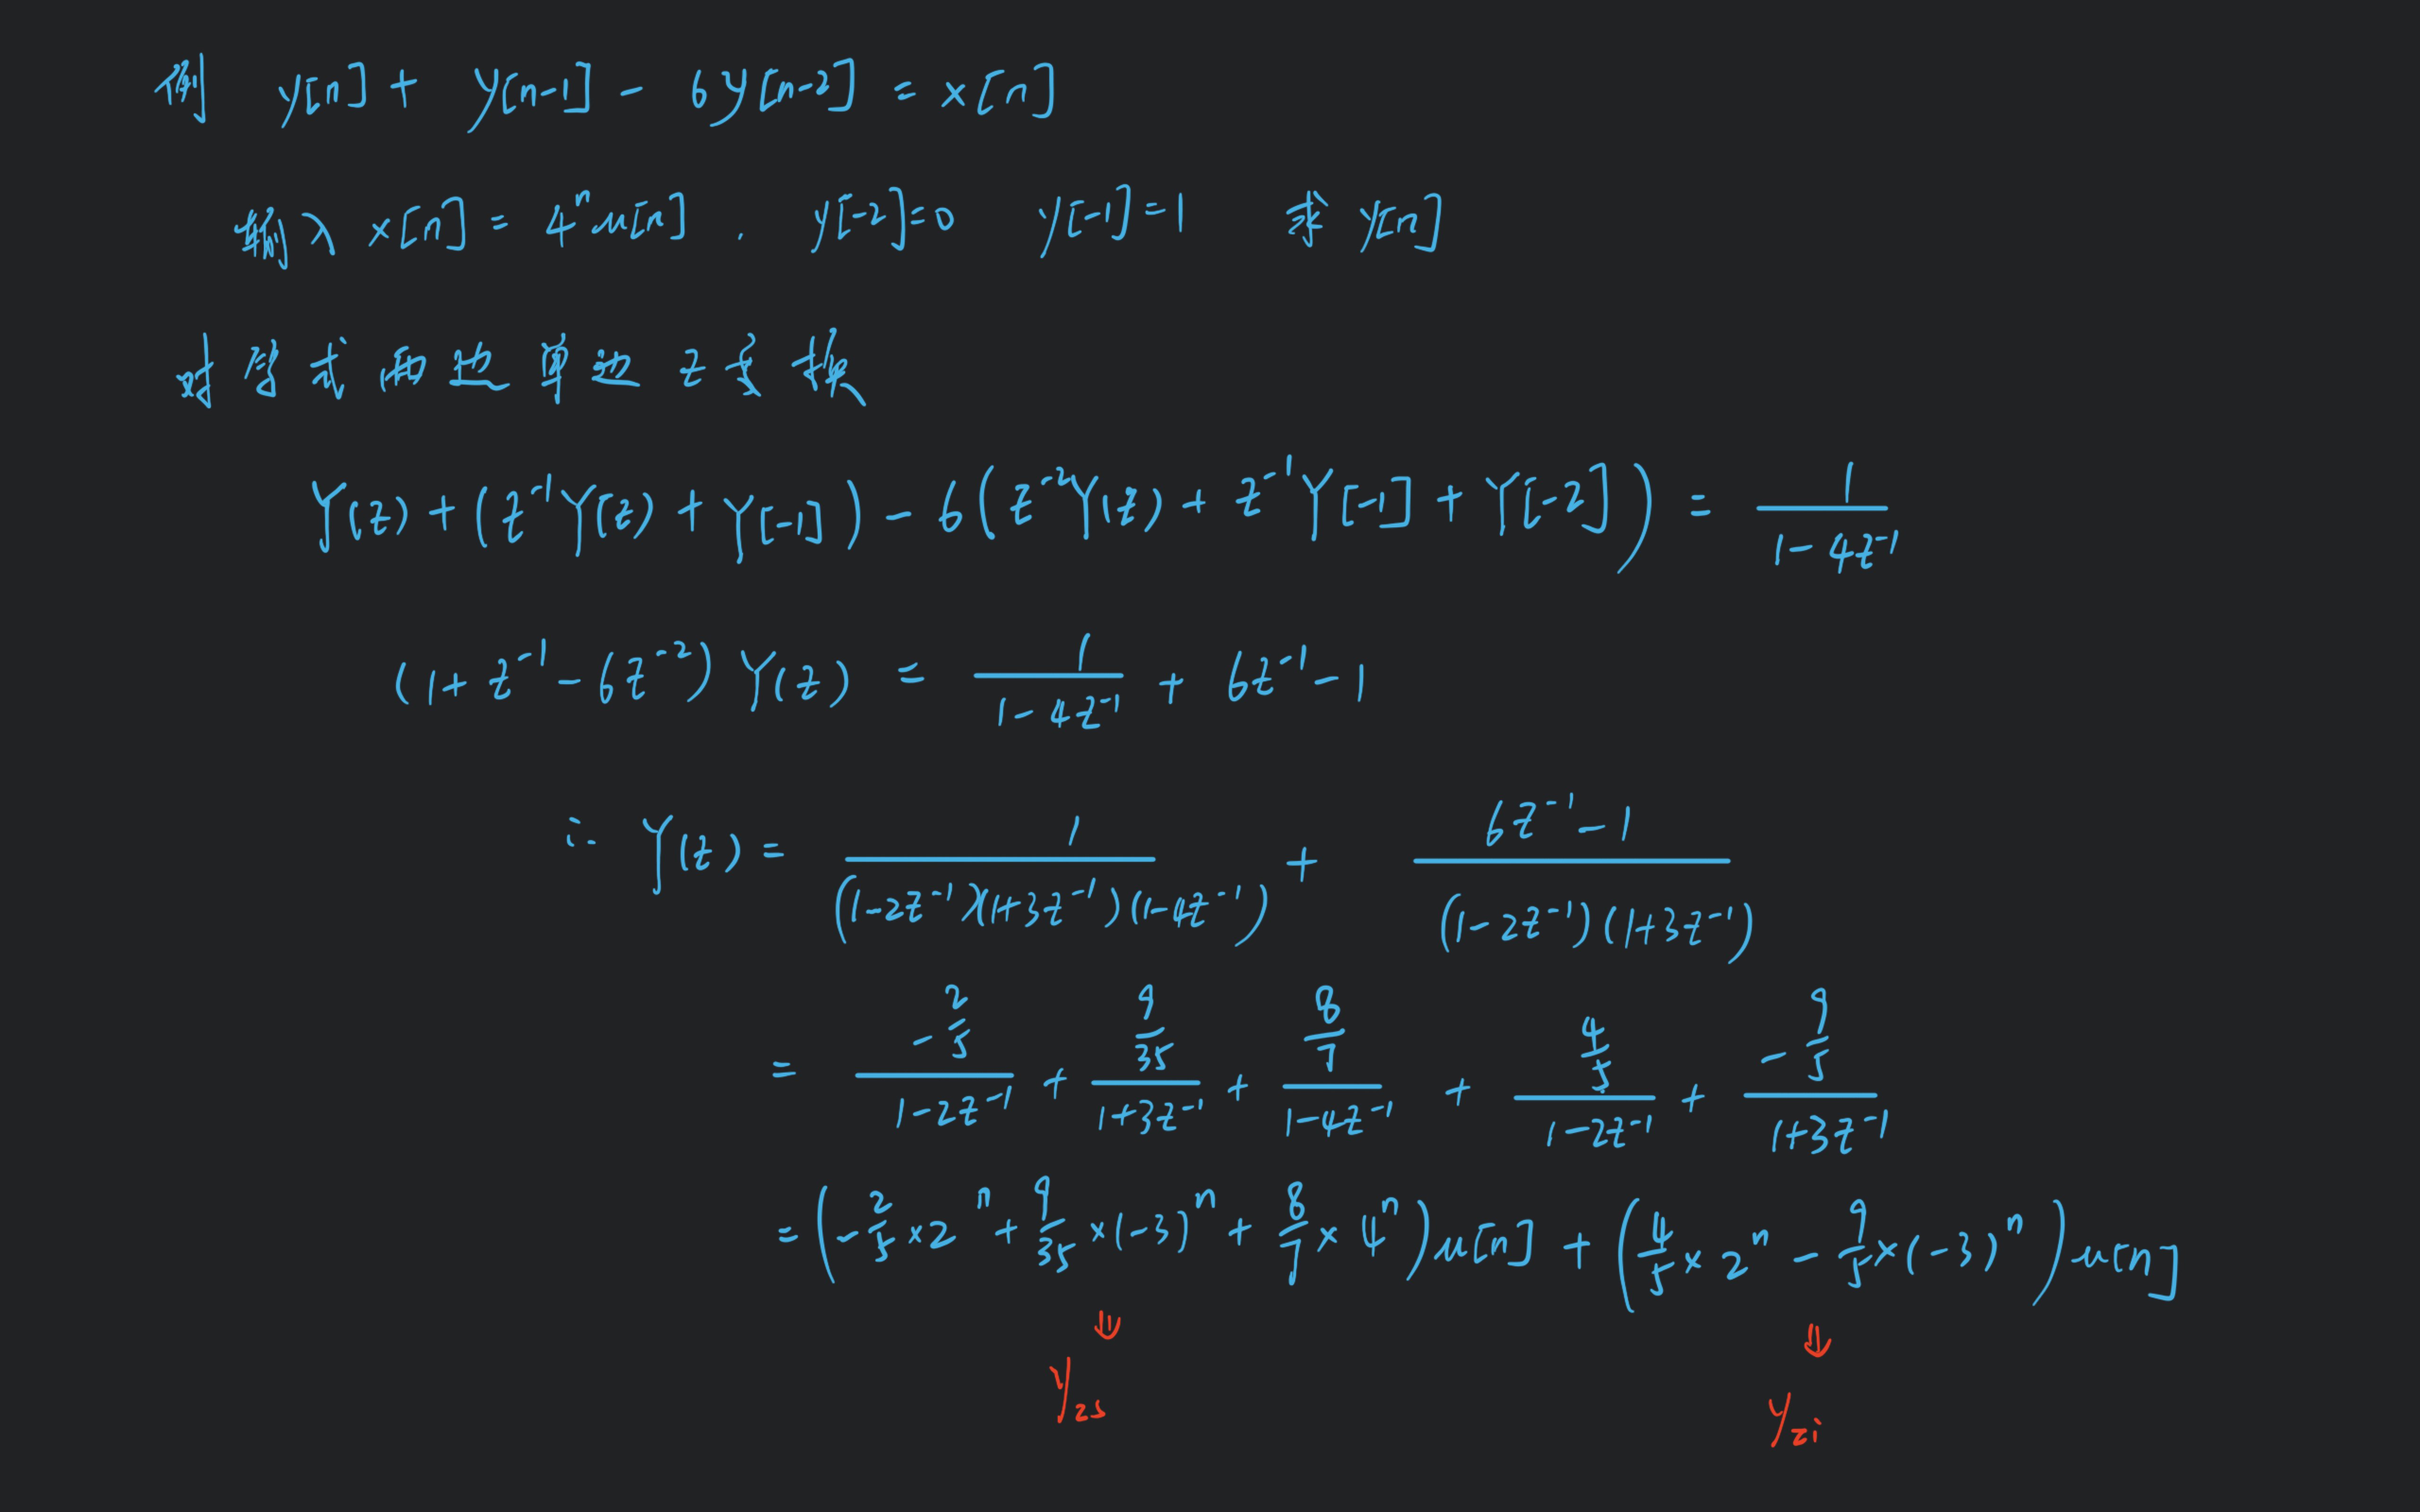 例 y[n] + y[n-1] - 6y[n-2] = x[n]
输入 x[n] = 4^n u[n] . y[-2]=0 y[-1]=1 求 y[n]
对等式两边单边z变换
Y(z) + (z^{-1}Y(z) + Y[-1]) - 6(z^{-2}Y(z) + z^{-1}Y[-1] + Y[-2]) = \frac{1}{1-4z^{-1}}
(1+z^{-1}-6z^{-2}) Y(z) = \frac{1}{1-4z^{-1}} + 6z^{-1} - 1
∴ Y(z) = \frac{1}{(1-2z^{-1})(1+3z^{-1})(1-4z^{-1})} + \frac{6z^{-1}-1}{(1-2z^{-1})(1+3z^{-1})}
= \frac{-\frac{2}{5}}{1-2z^{-1}} + \frac{\frac{9}{35}}{1+3z^{-1}} + \frac{\frac{8}{7}}{1-4z^{-1}} + \frac{\frac{4}{5}}{1-2z^{-1}} + \frac{-\frac{9}{5}}{1+3z^{-1}}
= (-\frac{2}{5}×2^n + \frac{9}{35}×(-3)^n + \frac{8}{7}×4^n)u[n] + (\frac{4}{5}×2^n - \frac{9}{5}×(-3)^n)u[n]
⇓ ⇓
y_{zs} y_{zi}